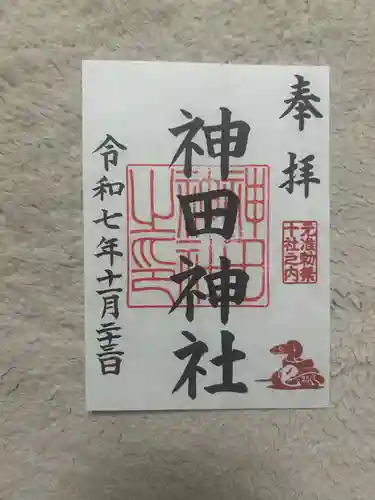 奉拝
元准勅祭
十社之内
神田神社
神田
神社
之印
令和七年十一月二十三日